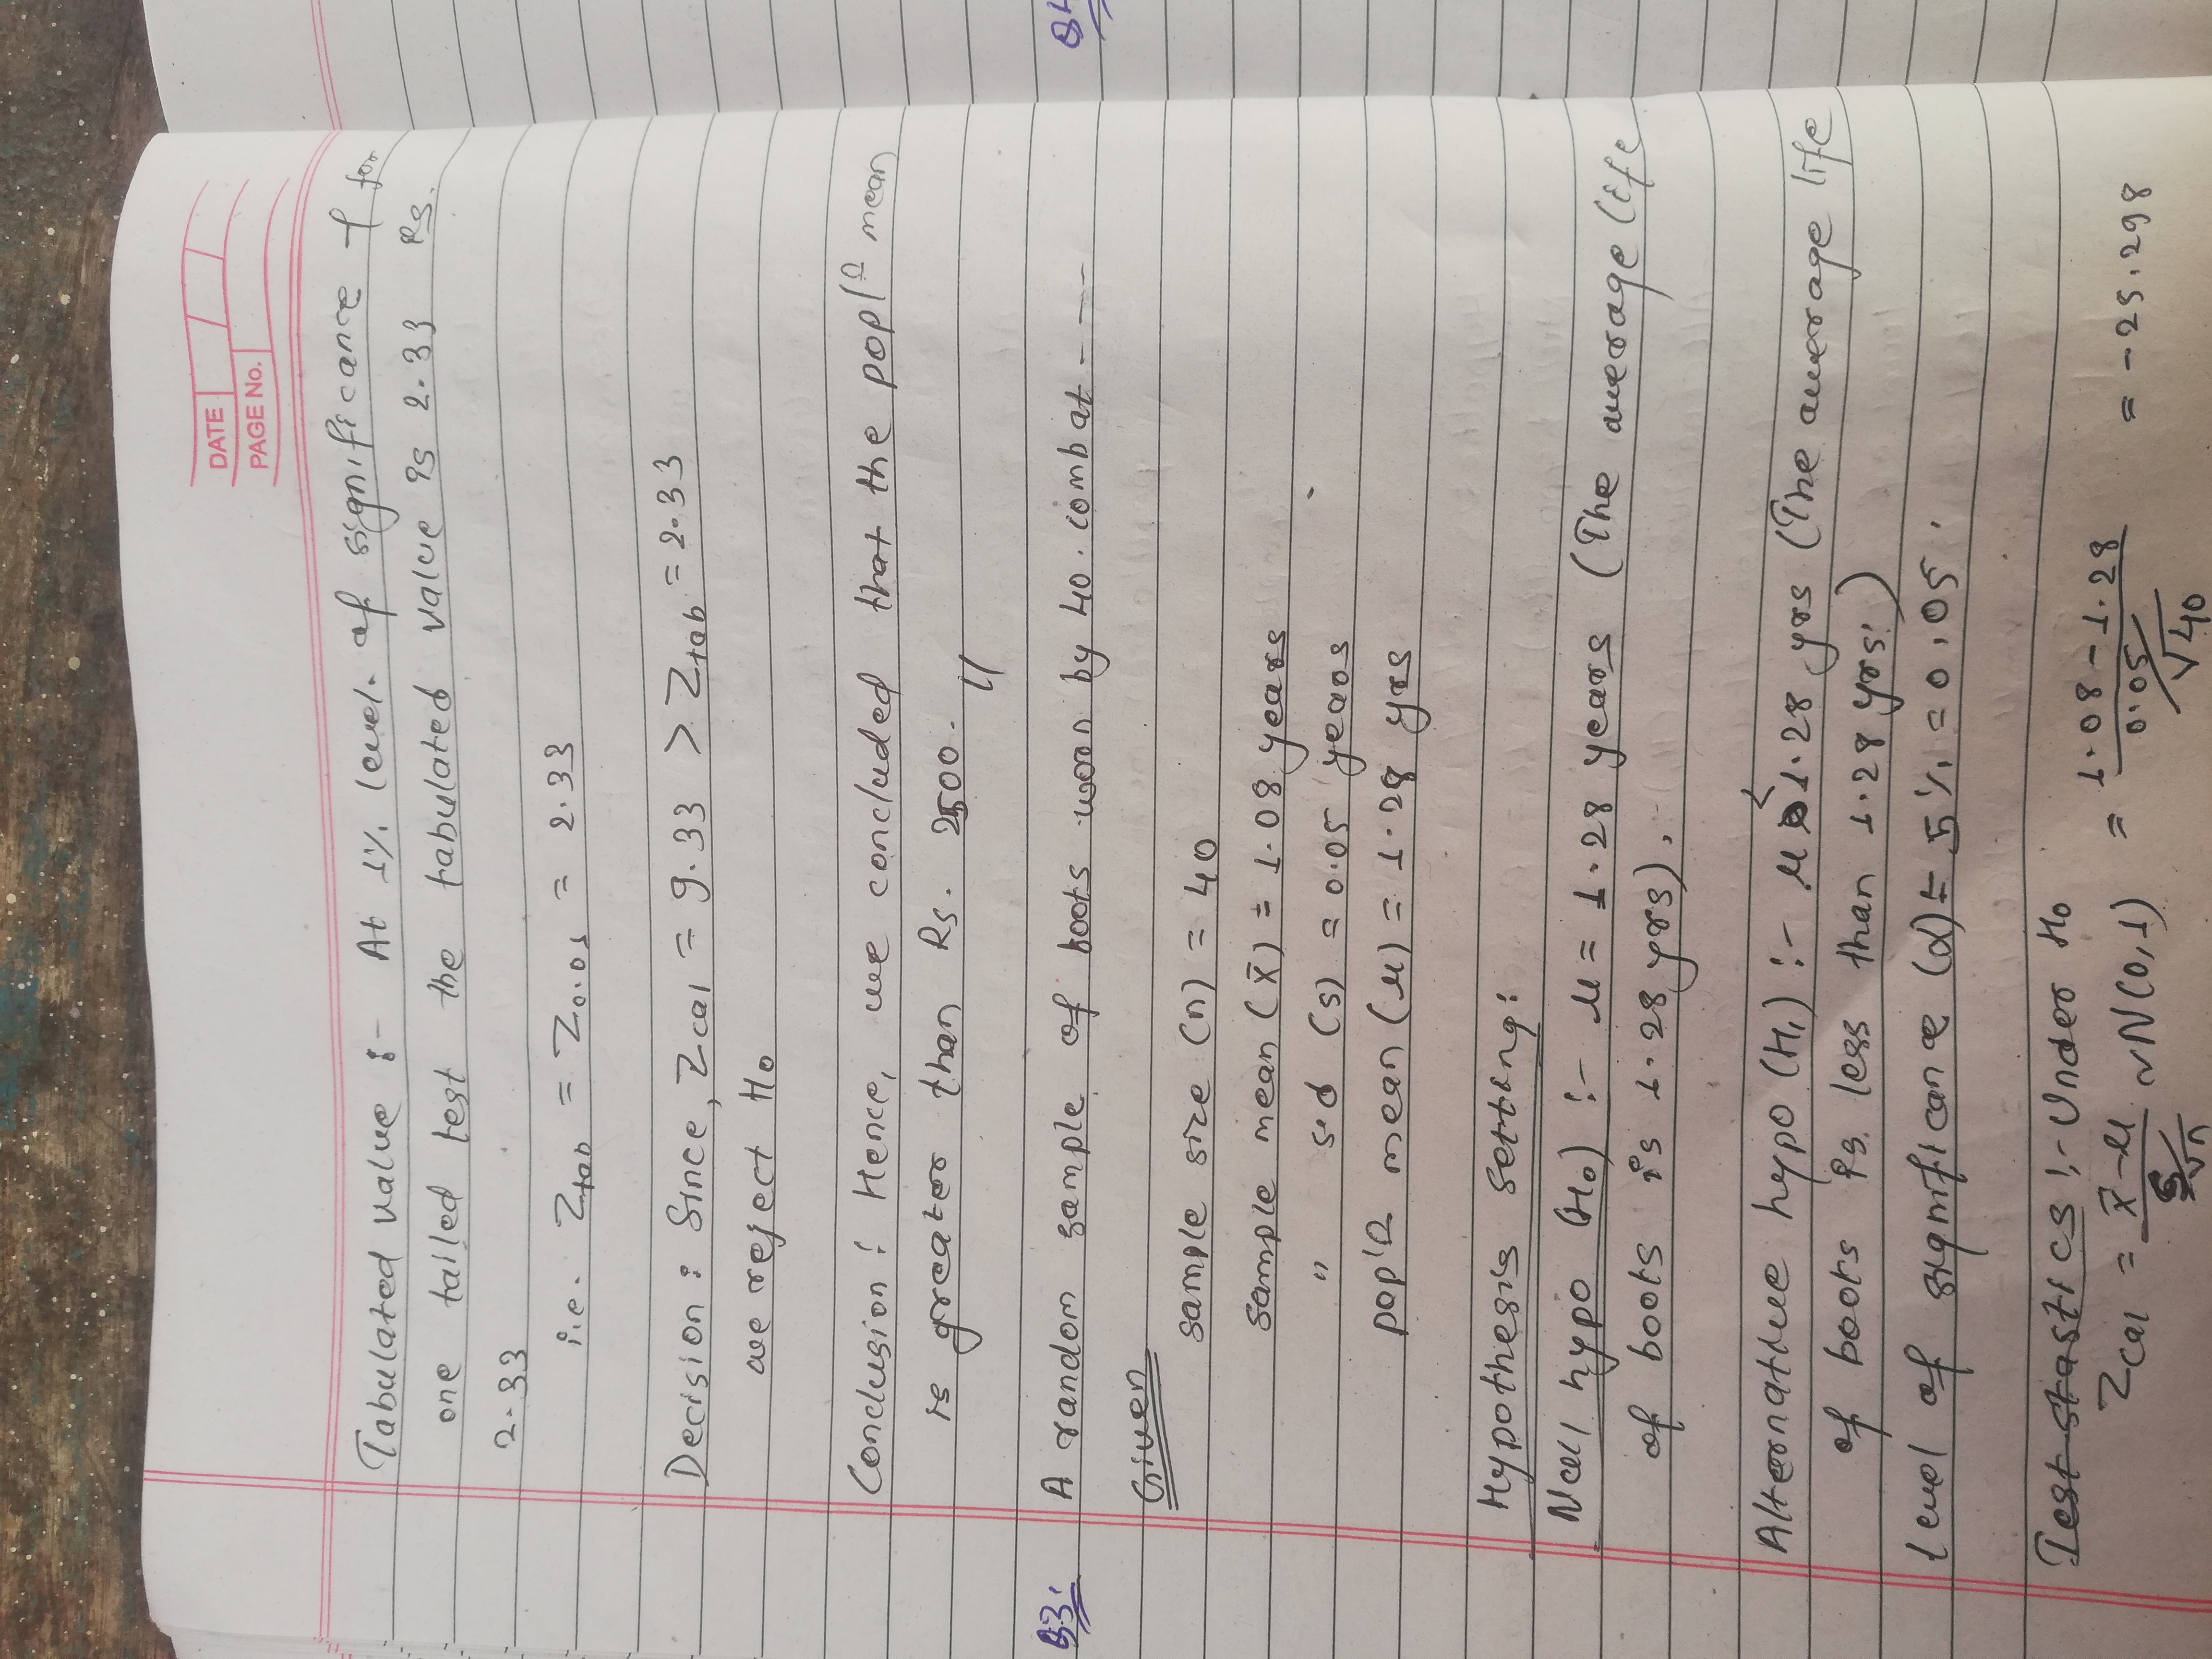 DATE
PAGE No.
Tabulated value :- At 1% level. of significance & for
one tailed test the tabulated value is 2.33 Rs.
2.33
i.e. Ztab = Z0.01 = 2.33
Decision : Since, Zcal = 9.33 > Ztab = 2.33
we reject H0
Conclusion : Hence, we concluded that the pop/n mean
is greater than Rs. 2500. //
Q3: A random sample of boots worn by 40. combat ----
Given
sample size (n) = 40
sample mean (x̄) = 1.08 years
" s.d (s) = 0.05 years
pop'n mean (μ) = 1.28 yrs
Hypothesis setting:
Null hypo (H0) :- μ = 1.28 years (The average life
of boots is 1.28 yrs).
Alternative hypo (H1) :- μ < 1.28 yrs (The average life
of boots is. less than 1.28 yrs.)
level of significance (α) = 5% = 0.05.
Test stastics :- Under H0
Zcal = x̄-μ / s/√n ~N(0,1) = 1.08-1.28 / 0.05/√40 = -25.298